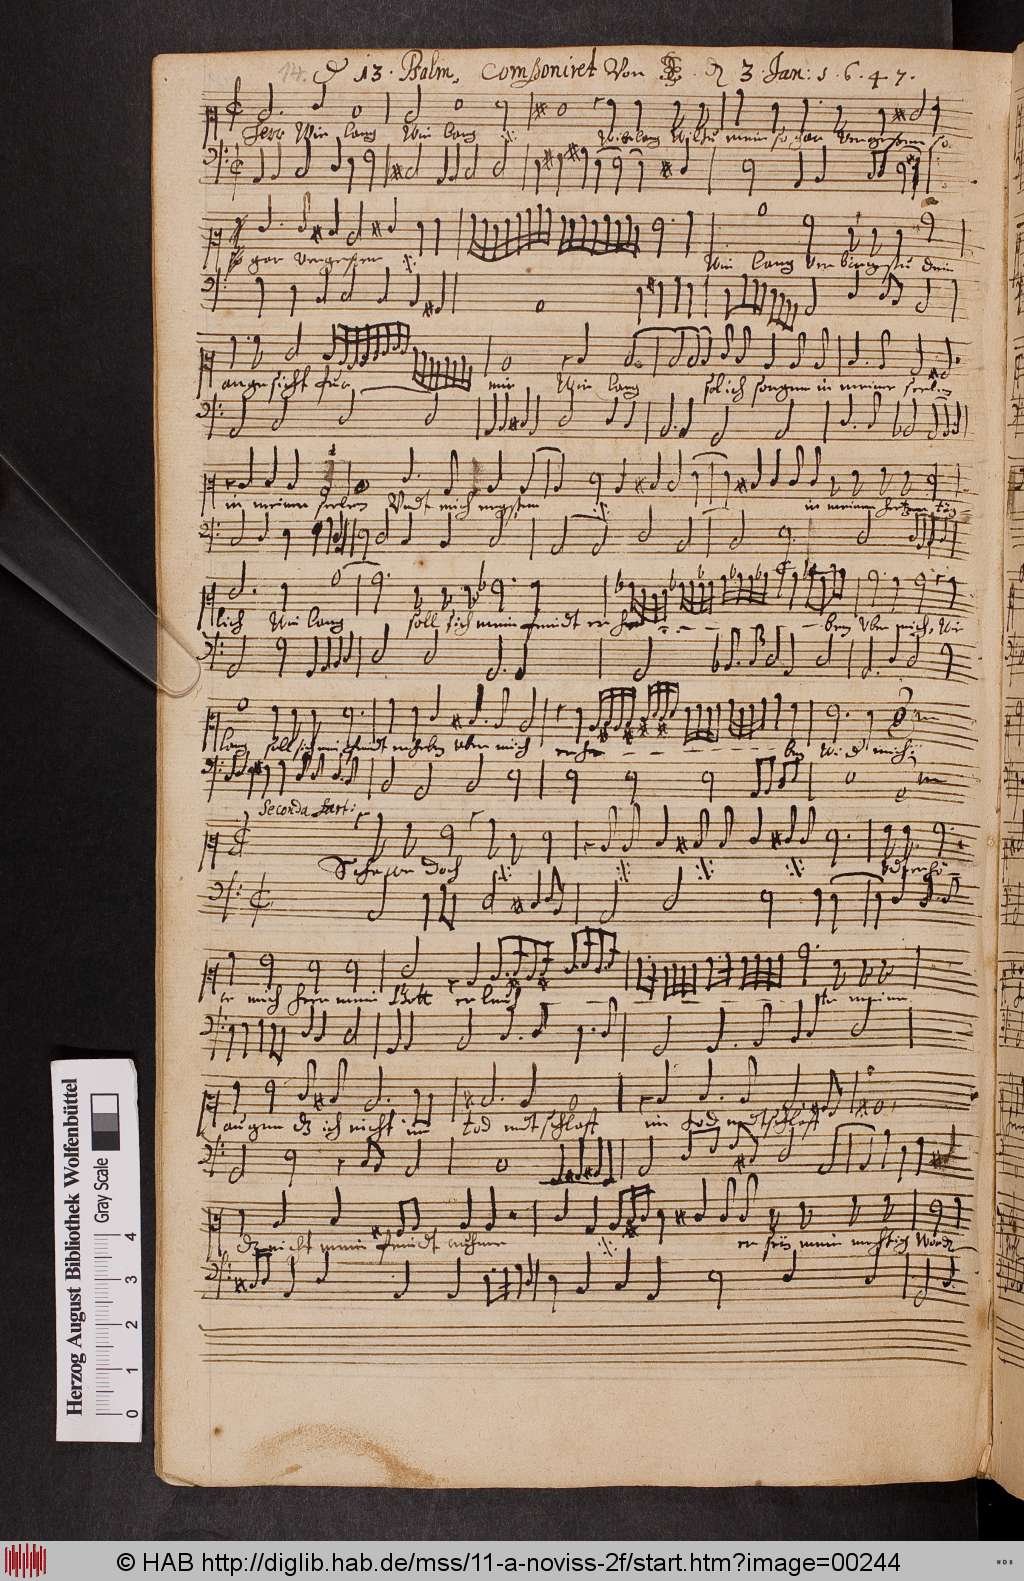 14. 13. Psalm, Componiret Von 3 Jan: 1.6.47.
Herr Wie lang Wie lang :/: Wie lang Wiltu mein so gar Vergeßen so
so gar Vergeßen :/: Wie lang Verbirgestu dein
angesicht für mir Wie lang sol ich sorgen in meiner seelen
in meiner seelen Undt mich engsten :/: in meinem hertzen täg=
lich Wie lang soll sich mein feindt erhe - - - ben Uber mich, Wie
lang soll sich mein feindt erheben uber mich erhe - - - ben
Seconda Part:
Schawe doch :/: :/: :/: :/:
re mich Herr mein Gott erleuch - - - te meine
augen dz ich nicht im tod entschlaff im tod entschlaff
dz nicht mein feindt rühme :/: er sey mein mechtig Word
Herzog August Bibliothek Wolfenbüttel
Gray Scale
0 1 2 3 4
© HAB http://diglib.hab.de/mss/11-a-noviss-2f/start.htm?image=00244
WDB